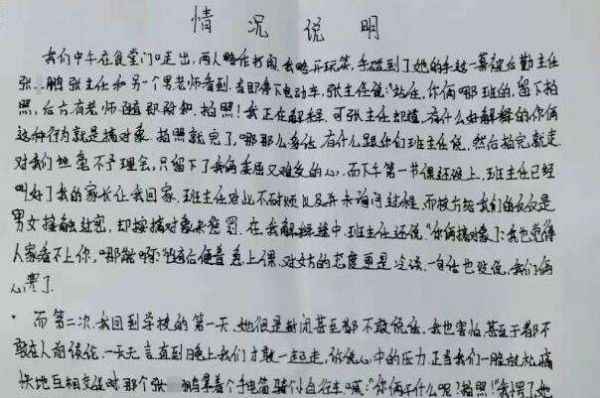 情况说明
我们中午在食堂门口走出,两人略作打闹,我略开玩笑,手碰到了她的手这一幕被后勤主任
张 鹏张主任和另一个男老师看到,立即停下电动车,张主任说:“站住,你俩哪班的,留下拍
照,后方有老师随即附和,拍照!我正在解释,可张主任却道,有什么好解释的你俩
这种行为就是搞对象,拍照就完了,哪那么多话,有什么跟你们班主任说,然后拍完就走
对我们丝毫不予理会,只留下了我俩委屈又难受的心,而下午第一节课还没上,班主任已经
叫好了我的家长让我回家,班主任对此不耐烦以及并未询问过程,而校方给我们的定义是
男女接触过密,却按搞对象来惩罚,在我解释途中班主任还说“你俩搞对象了?我也觉得
人家看不上你,哪能啊”说后便着急上课,对姑的态度更是冷淡,一句话也没说,我们俩
心寒了
而第二次,我回到学校的第一天,她很是郁闷甚至都不敢说话,我也害怕,甚至于都不
敢在人前谈论,一天无言直到晚上我们才敢一起走,诉说心中的压力,正当我们一脸放松痛
快地互相交谈时那个张 鹏拿着个手电筒骑个自行车喊:“你俩干什么呢?拍照!”我愣了她